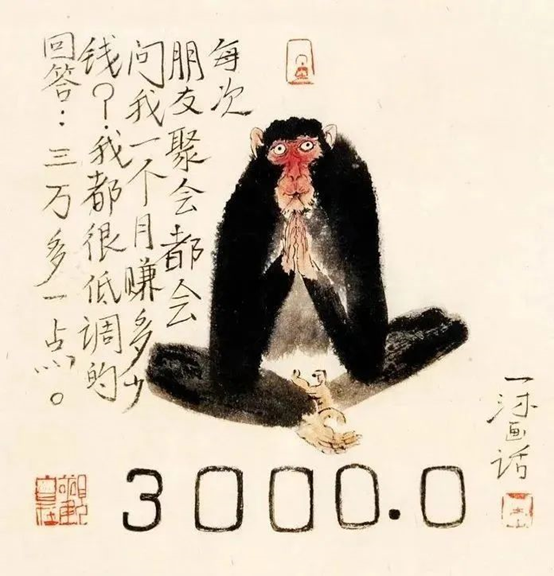 每次
朋友聚会都会
问我一个月赚多少
钱？我都很低调的
回答：三万多一点。
一沐画话
3000.0